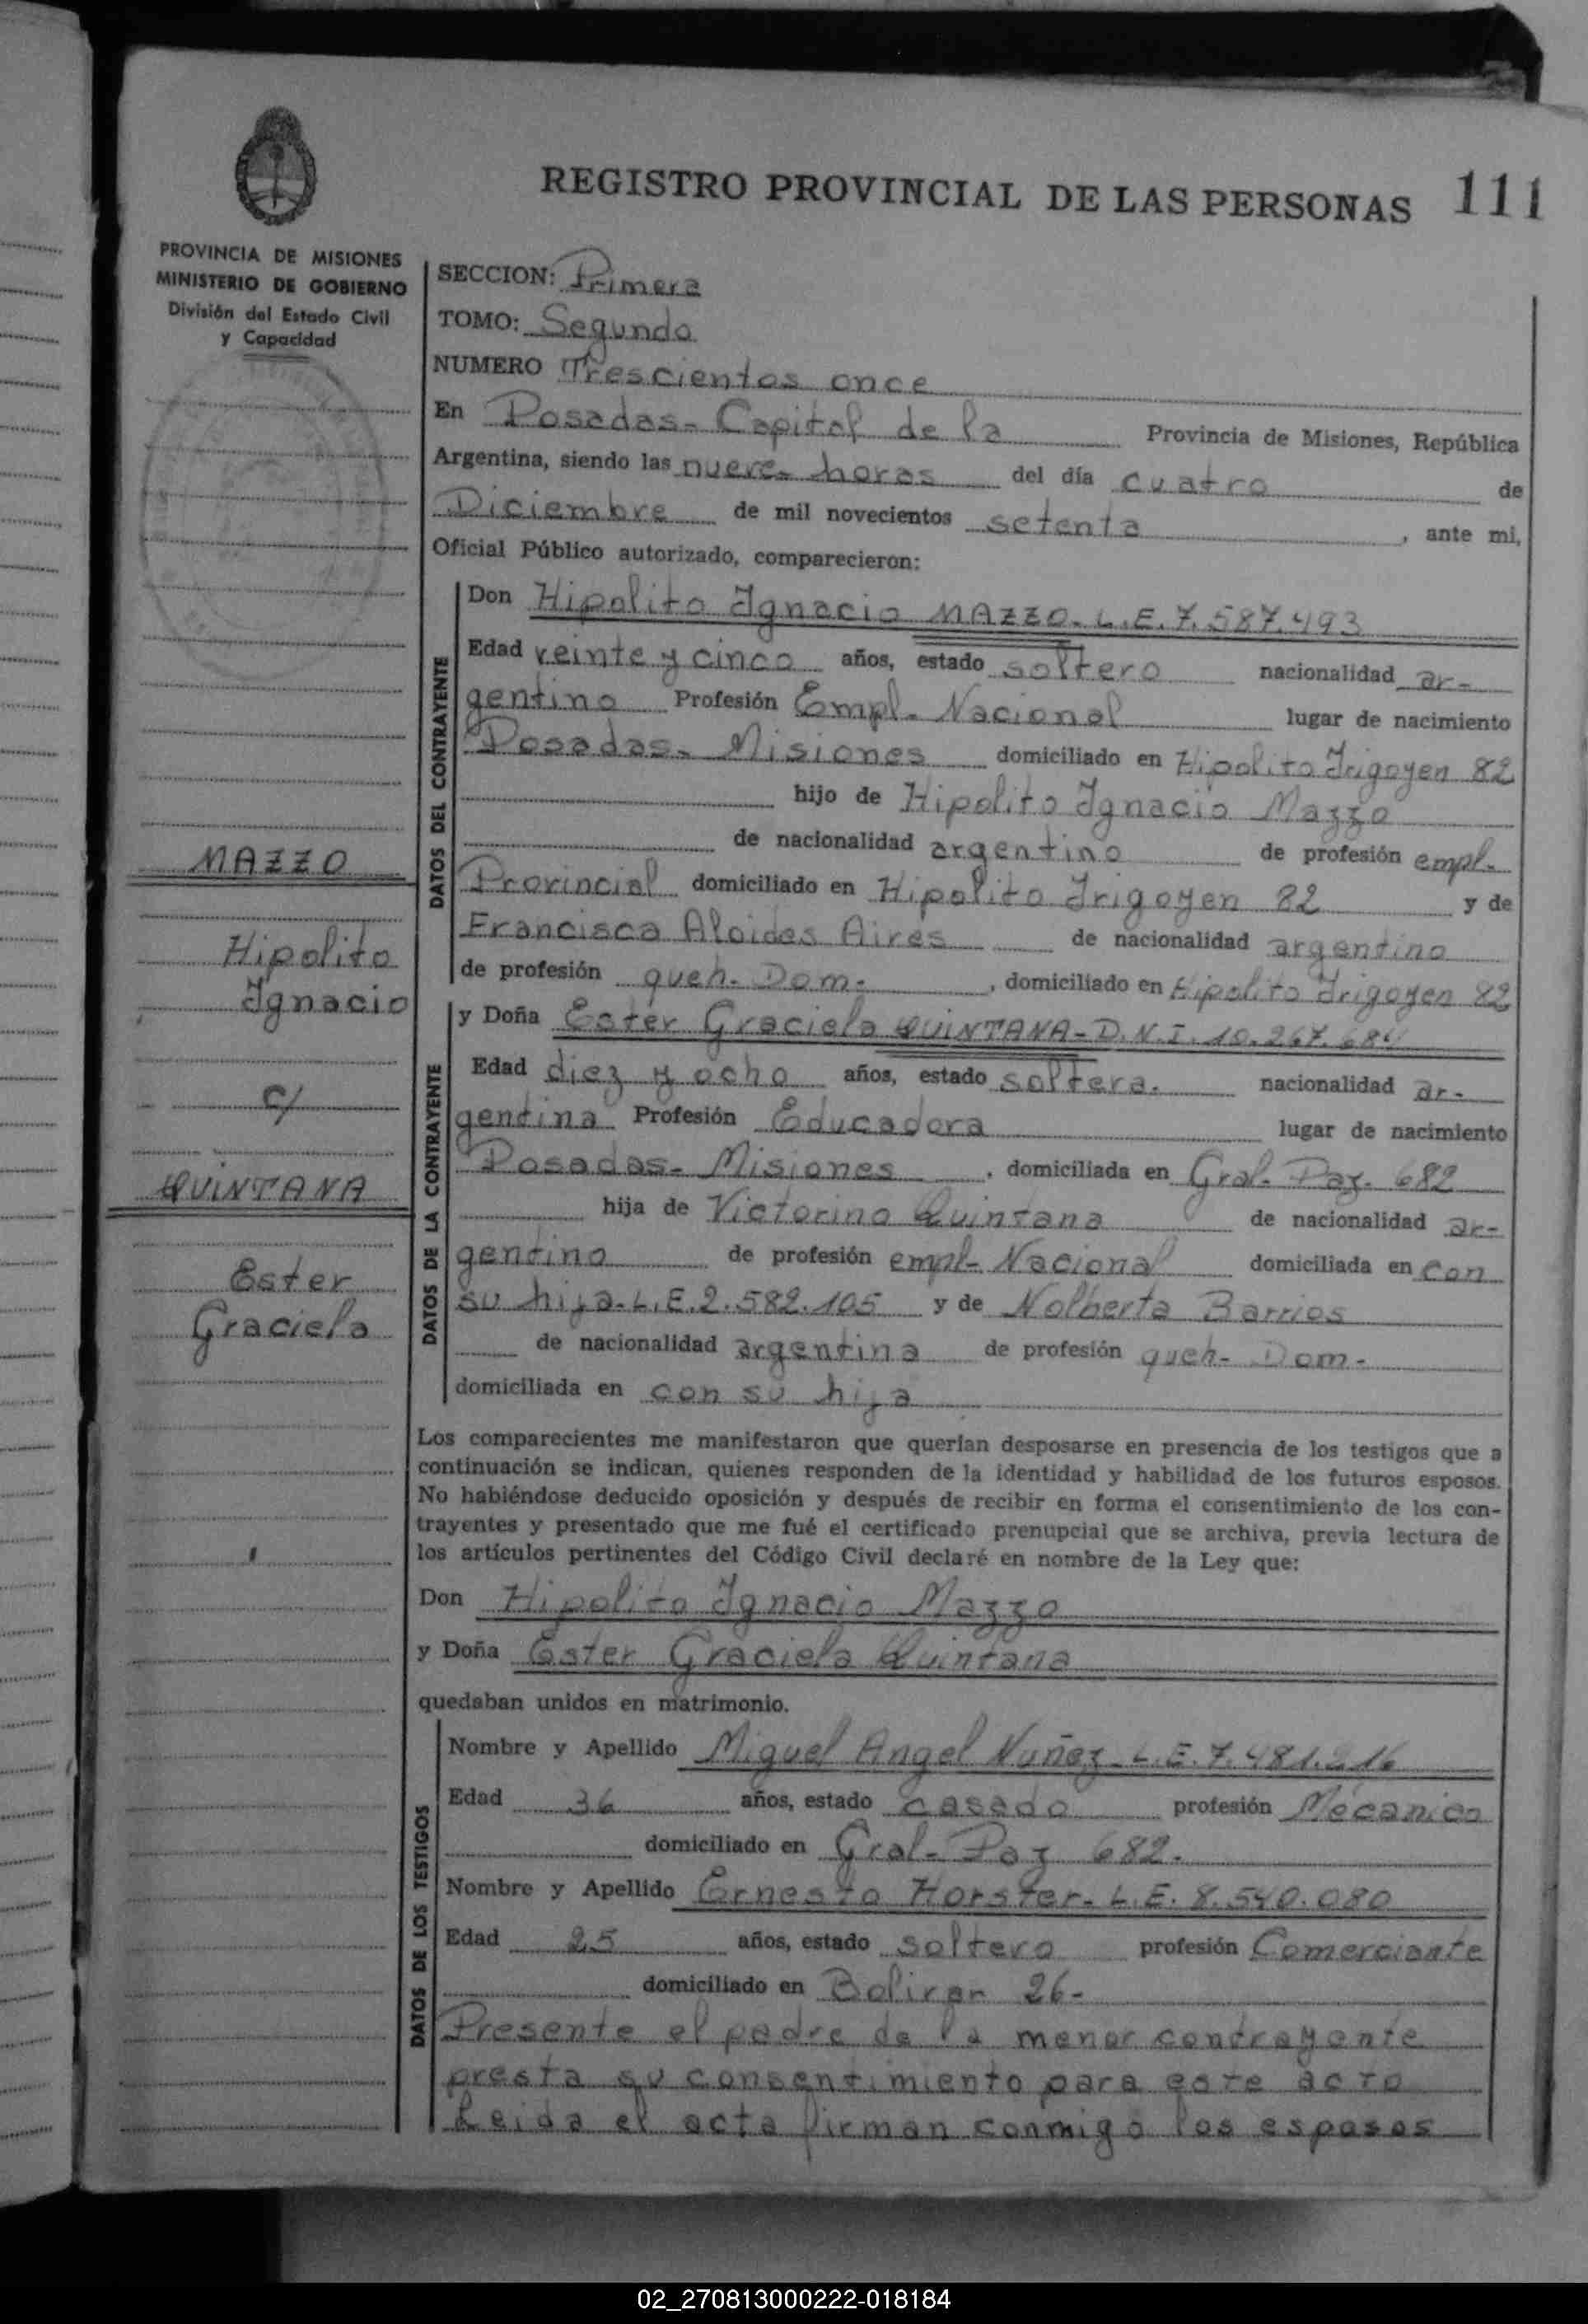 REGISTRO PROVINCIAL DE LAS PERSONAS 111
PROVINCIA DE MISIONES
MINISTERIO DE GOBIERNO
División del Estado Civil
y Capacidad
MAZZO
Hipolito
Ignacio
c/
QUINTANA
Ester
Graciela
SECCION: Primera
TOMO: Segundo
NUMERO Trescientos once
En Posadas- Capital de la Provincia de Misiones, República
Argentina, siendo las nueve- horas del día cuatro de
Diciembre de mil novecientos setenta, ante mi,
Oficial Público autorizado, comparecieron:
DATOS DEL CONTRAYENTE
Don Hipolito Ignacio MAZZO- L.E. 7.587.493
Edad veinte y cinco años, estado soltero nacionalidad ar-
gentino Profesión Empl- Nacional lugar de nacimiento
Posadas- Misiones domiciliado en Hipolito Irigoyen 82
hijo de Hipolito Ignacio Mazzo
de nacionalidad argentino de profesión empl-
Provincial domiciliado en Hipolito Irigoyen 82 y de
Francisca Aloides Aires de nacionalidad argentino
de profesión queh- Dom-, domiciliado en Hipolito Irigoyen 82
DATOS DE LA CONTRAYENTE
y Doña Ester Graciela QUINTANA- D.N.I. 10.267.
Edad diez y ocho años, estado soltera. nacionalidad ar-
gentina Profesión Educadora lugar de nacimiento
Posadas- Misiones, domiciliada en Gral- Paz- 682
hija de Victorino Quintana de nacionalidad ar-
gentino de profesión empl- Nacional domiciliada en con
su hija- L.E. 2.582.105 y de Nolberta Barrios
de nacionalidad argentina de profesión queh- Dom-
domiciliada en con su hija
Los comparecientes me manifestaron que querían desposarse en presencia de los testigos que a
continuación se indican, quienes responden de la identidad y habilidad de los futuros esposos.
No habiéndose deducido oposición y después de recibir en forma el consentimiento de los con-
trayentes y presentado que me fué el certificado prenupcial que se archiva, previa lectura de
los artículos pertinentes del Código Civil declaré en nombre de la Ley que:
Don Hipolito Ignacio Mazzo
y Doña Ester Graciela Quintana
quedaban unidos en matrimonio.
DATOS DE LOS TESTIGOS
Nombre y Apellido Miguel Angel Nuñez- L.E. 7.481.216
Edad 36 años, estado casado profesión Mecanico
domiciliado en Gral- Paz 682.
Nombre y Apellido Ernesto Horster- L.E. 8.540.080
Edad 25 años, estado soltero profesión Comerciante
domiciliado en Bolivar 26-
Presente el padre de la menor contrayente
presta su consentimiento para este acto
Leida el acta firman conmigo los esposos
02_270813000222-018184